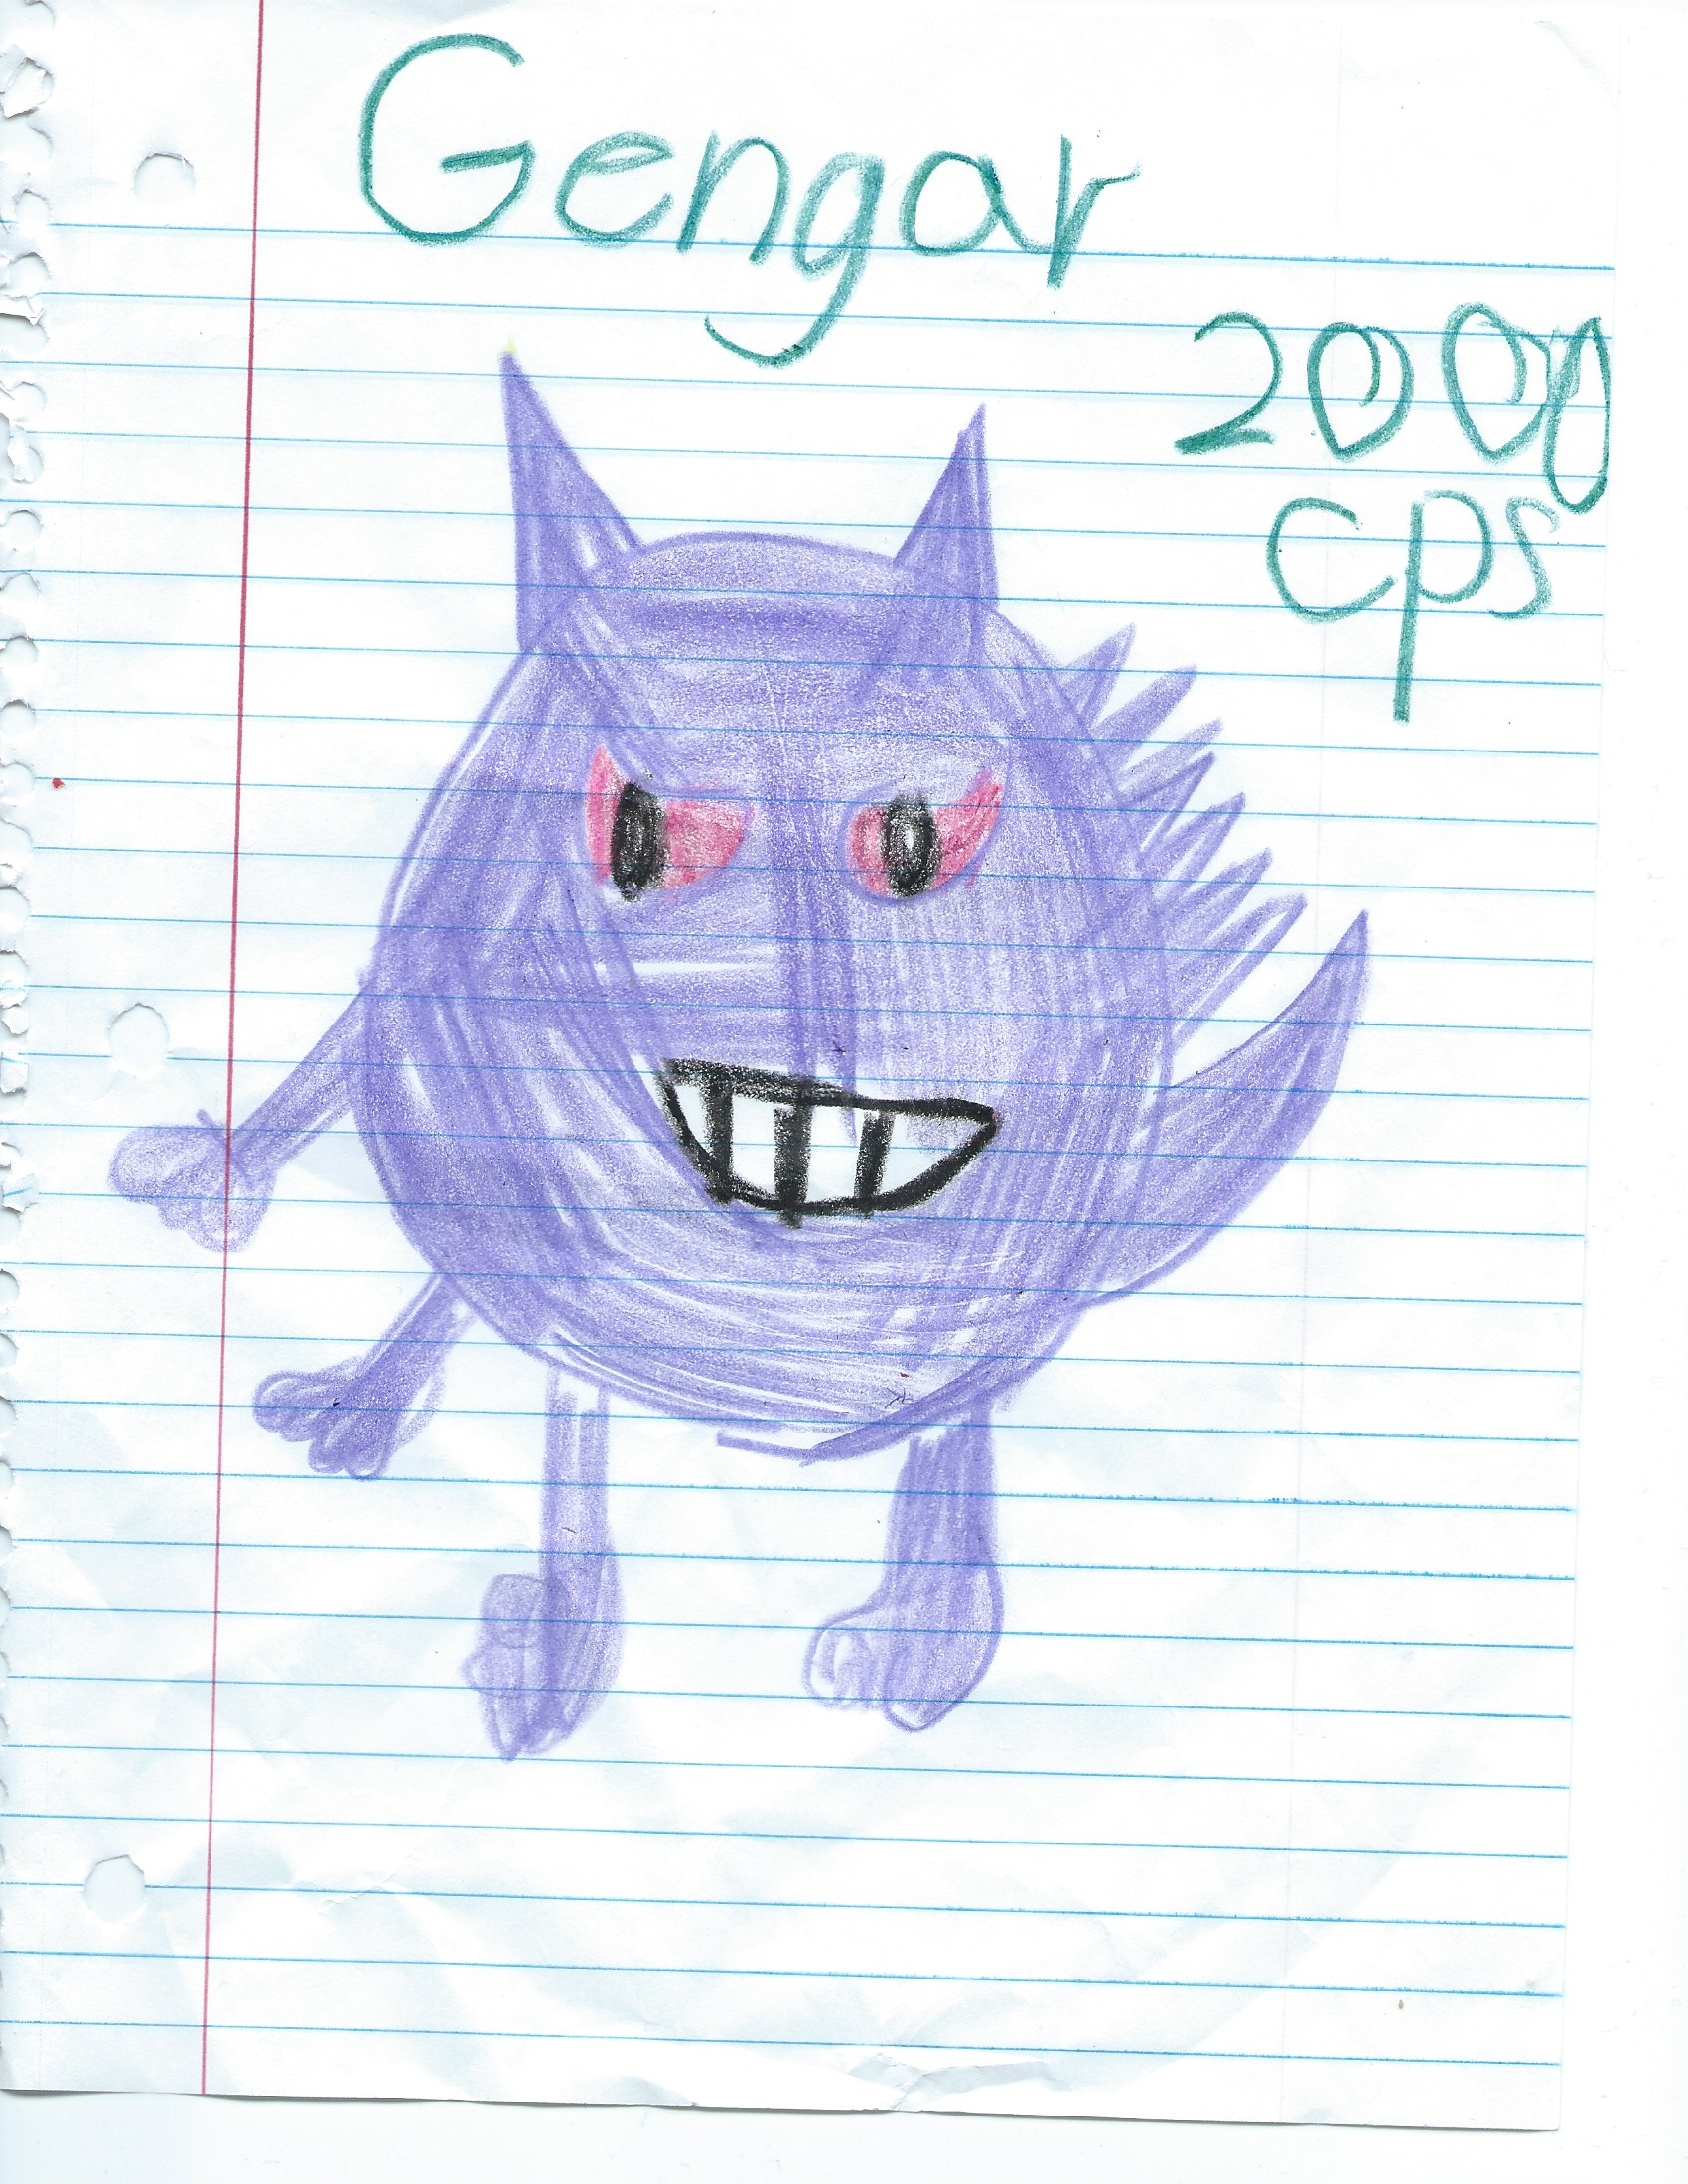 Gengar
2000
cps